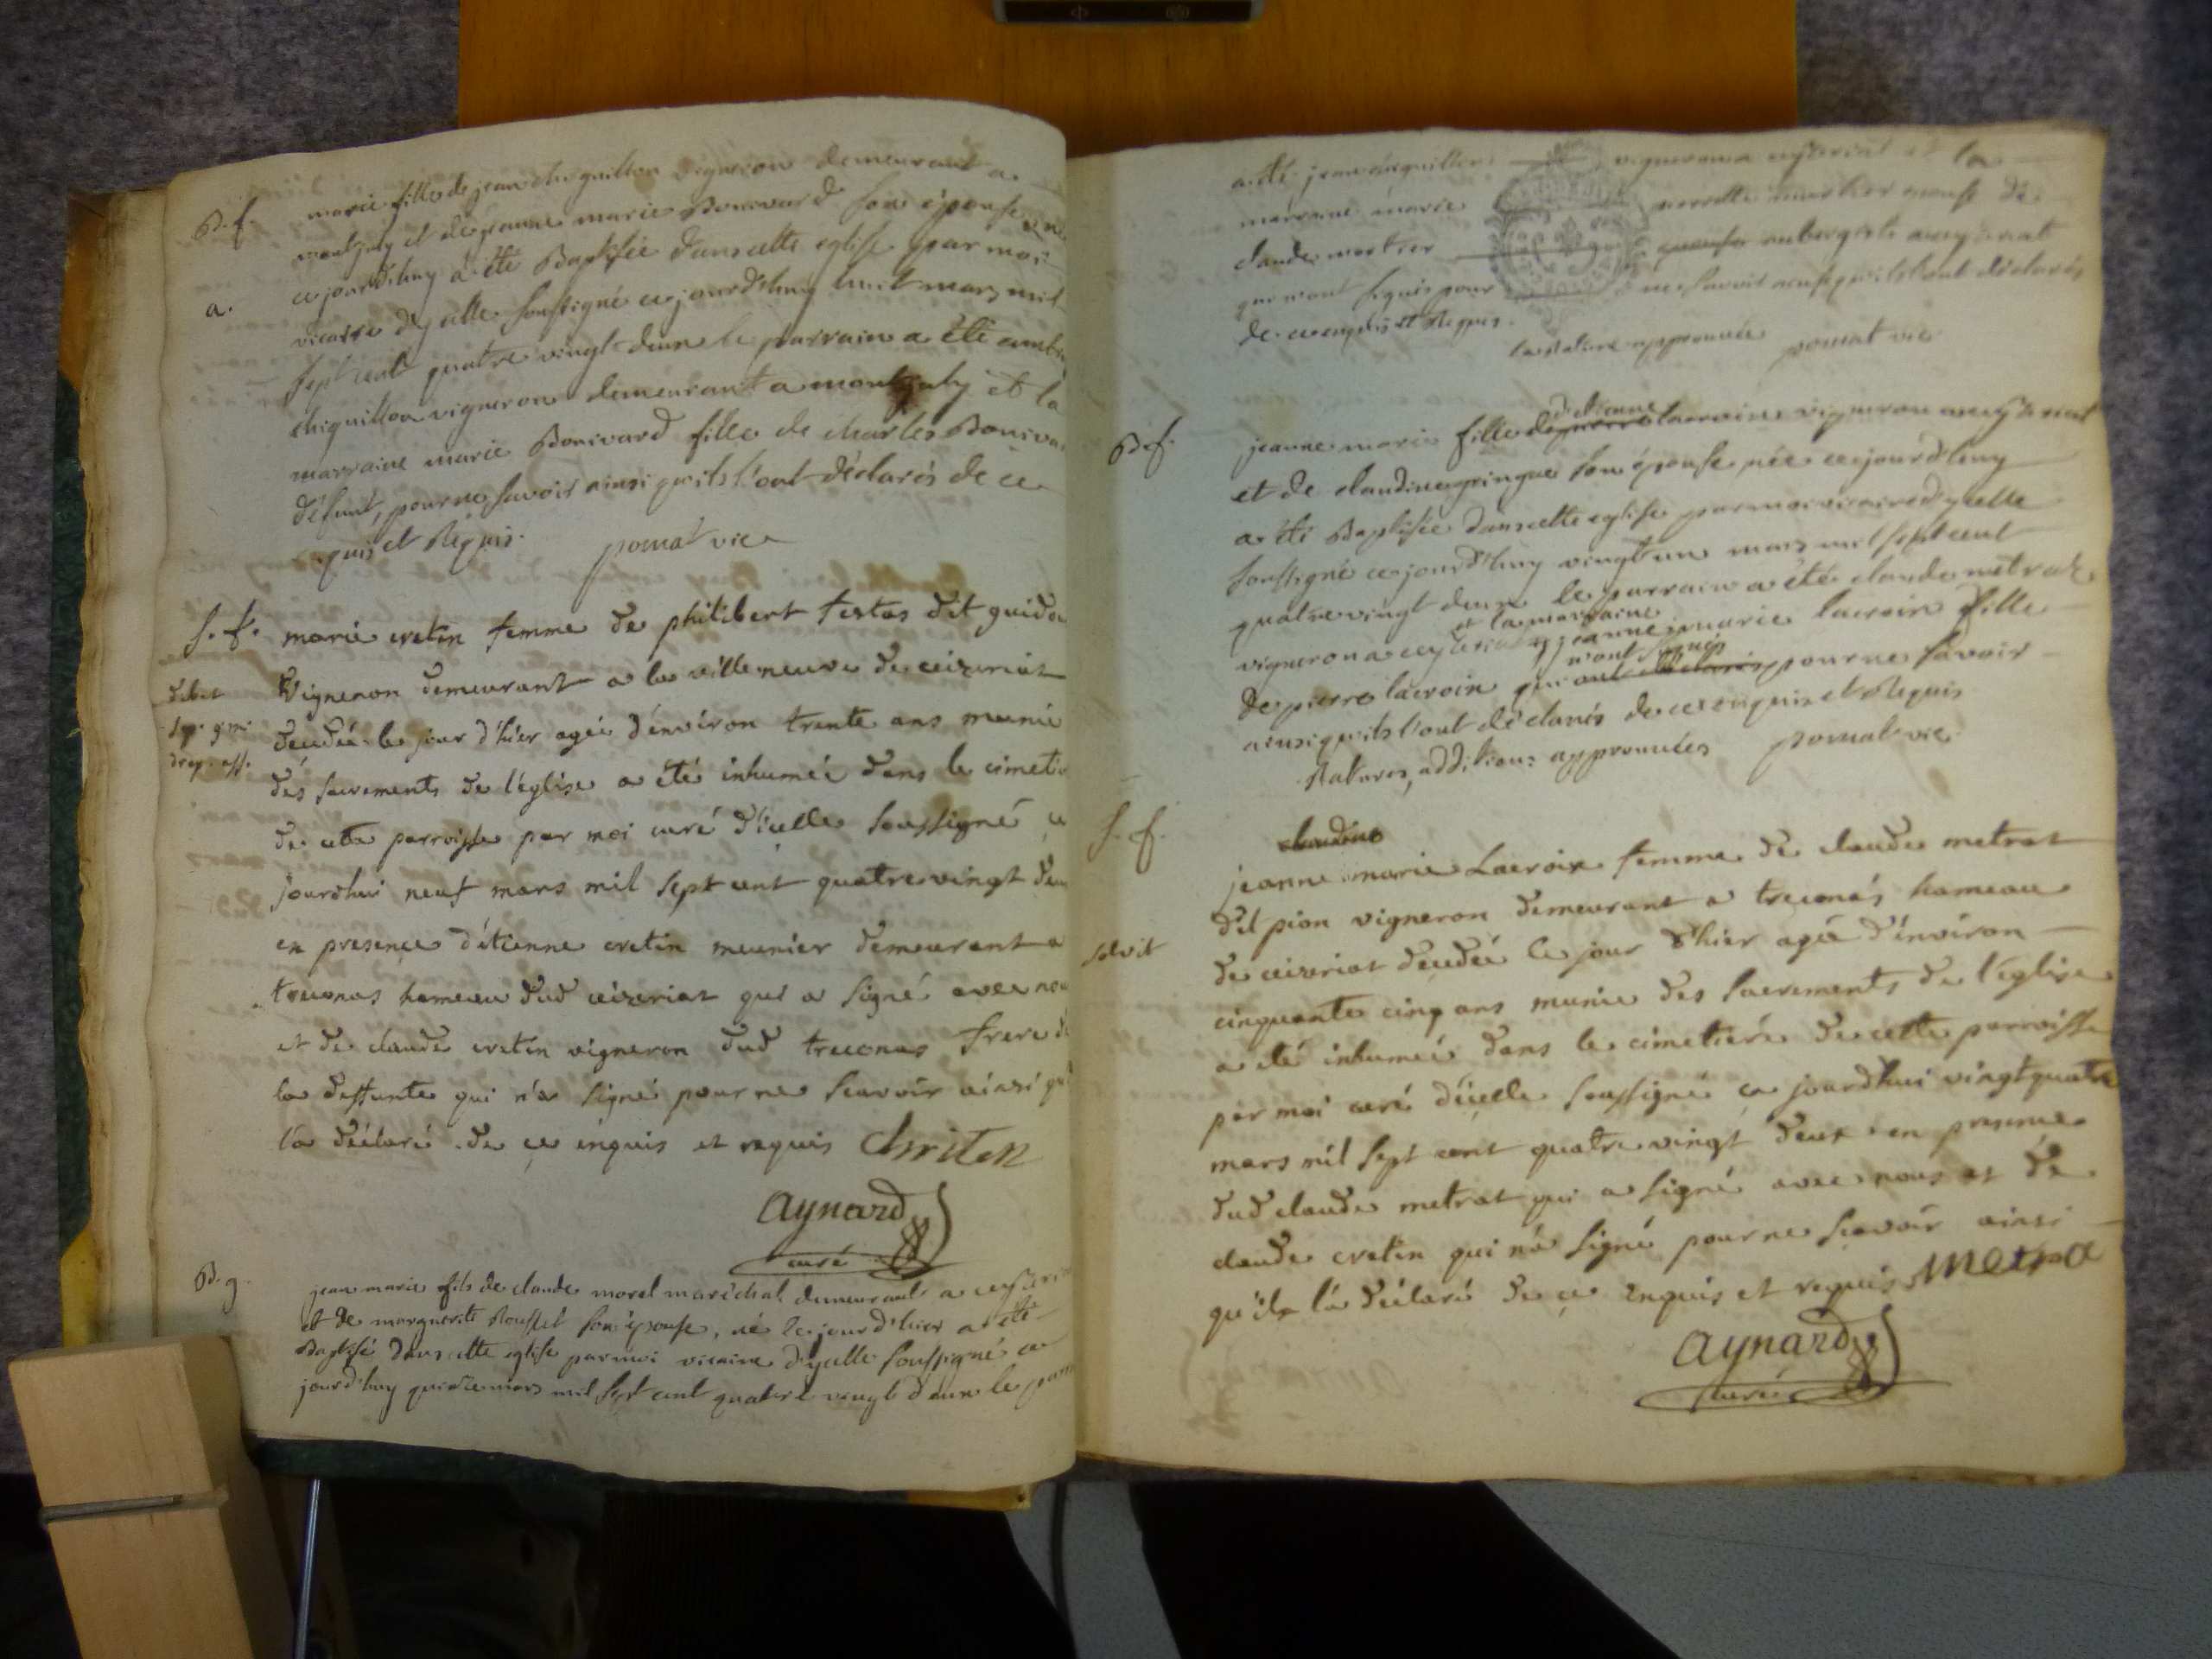 B. f.
marie fille de jean chiquillon vigneron demeurant a
montjuly et de jeanne marie Bonivard son épouse née
ce jourd'huy a été Baptisée dans cette eglise par moi
a.
vicaire d'ycelle soussigné ce jourd'huy huit mars mil
sept cent quatre vingt deux le parrain a été
chiquillon vigneron demeurant a montjuly et la
marraine marie Bonivard fille de charles Boniva
défunt, pour ne savoir ainsi qu'ils l'ont déclarés de ce
quis et Réquis. pomat vic
S. f.
marie cretin femme de philibert festas dit guido
debet
vigneron demeurant a la villeneuve de ceizeriat
décédée le jour d'hier agée d'environ trente ans munie
des sacrements de l'église a été inhumée dans le cimetie
de cette parroisse par moi curé d'icelle soussigné ce
jourdhui neuf mars mil sept cent quatre vingt deu
en presence d'étienne cretin meunier demeurant a
treconas hameau dud ceizeriat qui a signé avec nou
et de claude cretin vigneron dud treconas frere de
la deffunte qui n'a signé pour ne scavoir ainsi qu
la déclaré de ce enquis et requis Chriten
aynard
curé
B. g.
jean marie fils de claude morel maréchal demeurant a ceyseria
et de marguerite Rousset son épouse, né le jourd'hier a été
Baptisé dans cette eglise par moi vicaire d'ycelle soussigné ce
jourd'huy quinze mars mil sept cent quatre vingt deux le parr
a été jean chiquillon vigneron a ceyseriat et la
marraine marie perrette mortier epouse de
claude mortier aubergiste a ceyseriat
qui n'ont signés pour ne savoir ainsi qu'ils l'ont déclarés
de ce enquis et Requis.
la Rature approuvée pomat vic
B. f.
d'etienne
jeanne marie fille de pierre lacroix vigneron a ceyseriat
et de claudine pingue son épouse née ce jourd'huy
a été Baptisée dans cette eglise par moi vicaire d'ycelle
soussigné ce jourd'huy vingt un mars mil sept cent
quatre vingt deux le parrain a été claude metraz
et la marraine
vigneron a ceyseriat jeanne marie lacroix fille
n'ont signés
de pierre lacroix qui ont déclarés pour ne savoir
ainsi qu'ils l'ont déclarés de ce enquis et Requis
Ratures, additions approuvées pomat vic
S. f.
claudine
jeanne marie Lacroix femme de claude metrat
dit pion vigneron demeurant a treconas hameau
solvit
de ceizeriat décédée le jour d'hier agée d'environ
cinquante cinq ans munie des sacrements de l'église
a été inhumée dans le cimetiére de cette parroisse
par moi curé d'icelle soussigné ce jourdhui vingt quatre
mars mil sept cent quatre vingt deux en presence
dud claude metrat qui a signé avec nous et de
claude cretin qui n'a signé pour ne scavoir ainsi
qu'il la déclaré de ce enquis et requis Metra
aynard
curé